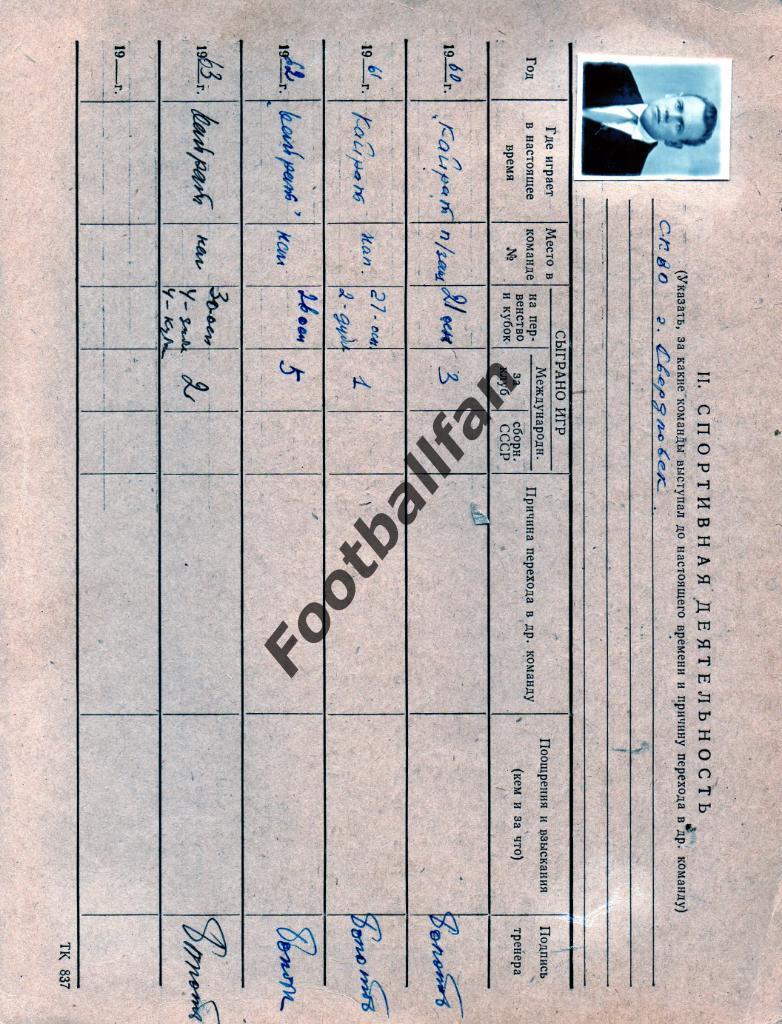 II. СПОРТИВНАЯ ДЕЯТЕЛЬНОСТЬ
(Указать, за какие команды выступал до настоящего времени и причину перехода в др. команду)
СКВО г. Свердловск
Год
Где играет в настоящее время
Место в команде №
СЫГРАНО ИГР
на первенство и кубок
Международн.
за клуб
сборн. СССР
Причина перехода в др. команду
Поощрения и взыскания (кем и за что)
Подпись тренера
1960 г. Кайрат п/защ 21 осн 3
1961 г. Кайрат нап. 27-осн. 1
2-дубл
1962 г. Кайрат нап 26 осн 5
1963 г. Кайрат нап 30 осн 2
19 г.
ТК 837
Footballfan